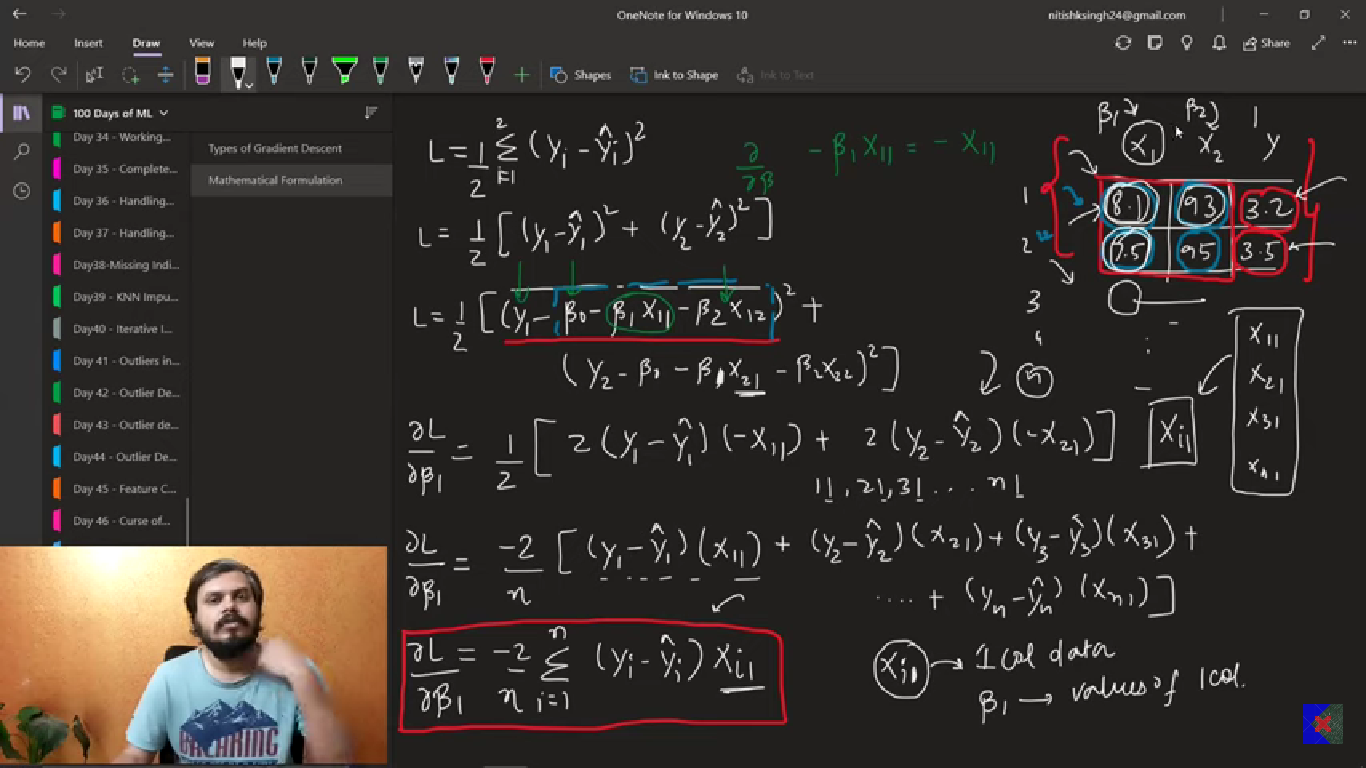 OneNote for Windows 10
nitishksingh24@gmail.com
Home Insert Draw View Help
Share
Shapes
Ink to Shape
Ink to Text
100 Days of ML
Day 34 - Working...
Day 35 - Complete...
Day 36 - Handling...
Day 37 - Handling...
Day38-Missing Indi...
Day39 - KNN Impu...
Day40 - Iterative I...
Day 41 - Outliers in
Day 42 - Outlier De...
Day 43 - Outlier de...
Day44 - Outlier De...
Day 45 - Feature C...
Day 46 - Curse of...
Types of Gradient Descent
Mathematical Formulation
L = 1/2 Σ_{i=1}^{2} (yᵢ - ŷᵢ)²
∂/∂β - β₁ X₁₁ = - X₁₁
L = 1/2 [(y₁ - ŷ₁)² + (y₂ - ŷ₂)²]
L = 1/2 [(y₁ - β₀ - β₁ X₁₁ - β₂ X₁₂)² +
(y₂ - β₀ - β₁ X₂₁ - β₂ X₂₂)²]
∂L/∂β₁ = 1/2 [2 (y₁ - ŷ₁) (-X₁₁) + 2 (y₂ - ŷ₂) (-X₂₁)]
11, 21, 31 . . . n1
∂L/∂β₁ = -2/n [(y₁ - ŷ₁) (x₁₁) + (y₂ - ŷ₂) (x₂₁) + (y₃ - ŷ₃) (x₃₁) +
.... + (yₙ - ŷₙ) (xₙ₁)]
∂L/∂β₁ = -2/n Σ_{i=1}^{n} (yᵢ - ŷᵢ) xᵢ₁
xᵢ₁ → 1 col data
β₁ → values of 1 col.
β₁ β₂
x₁ x₂ y
1 8.1 93 3.2
2 7.5 95 3.5
3
4
Xᵢ₁
X₁₁
X₂₁
X₃₁
X₄₁